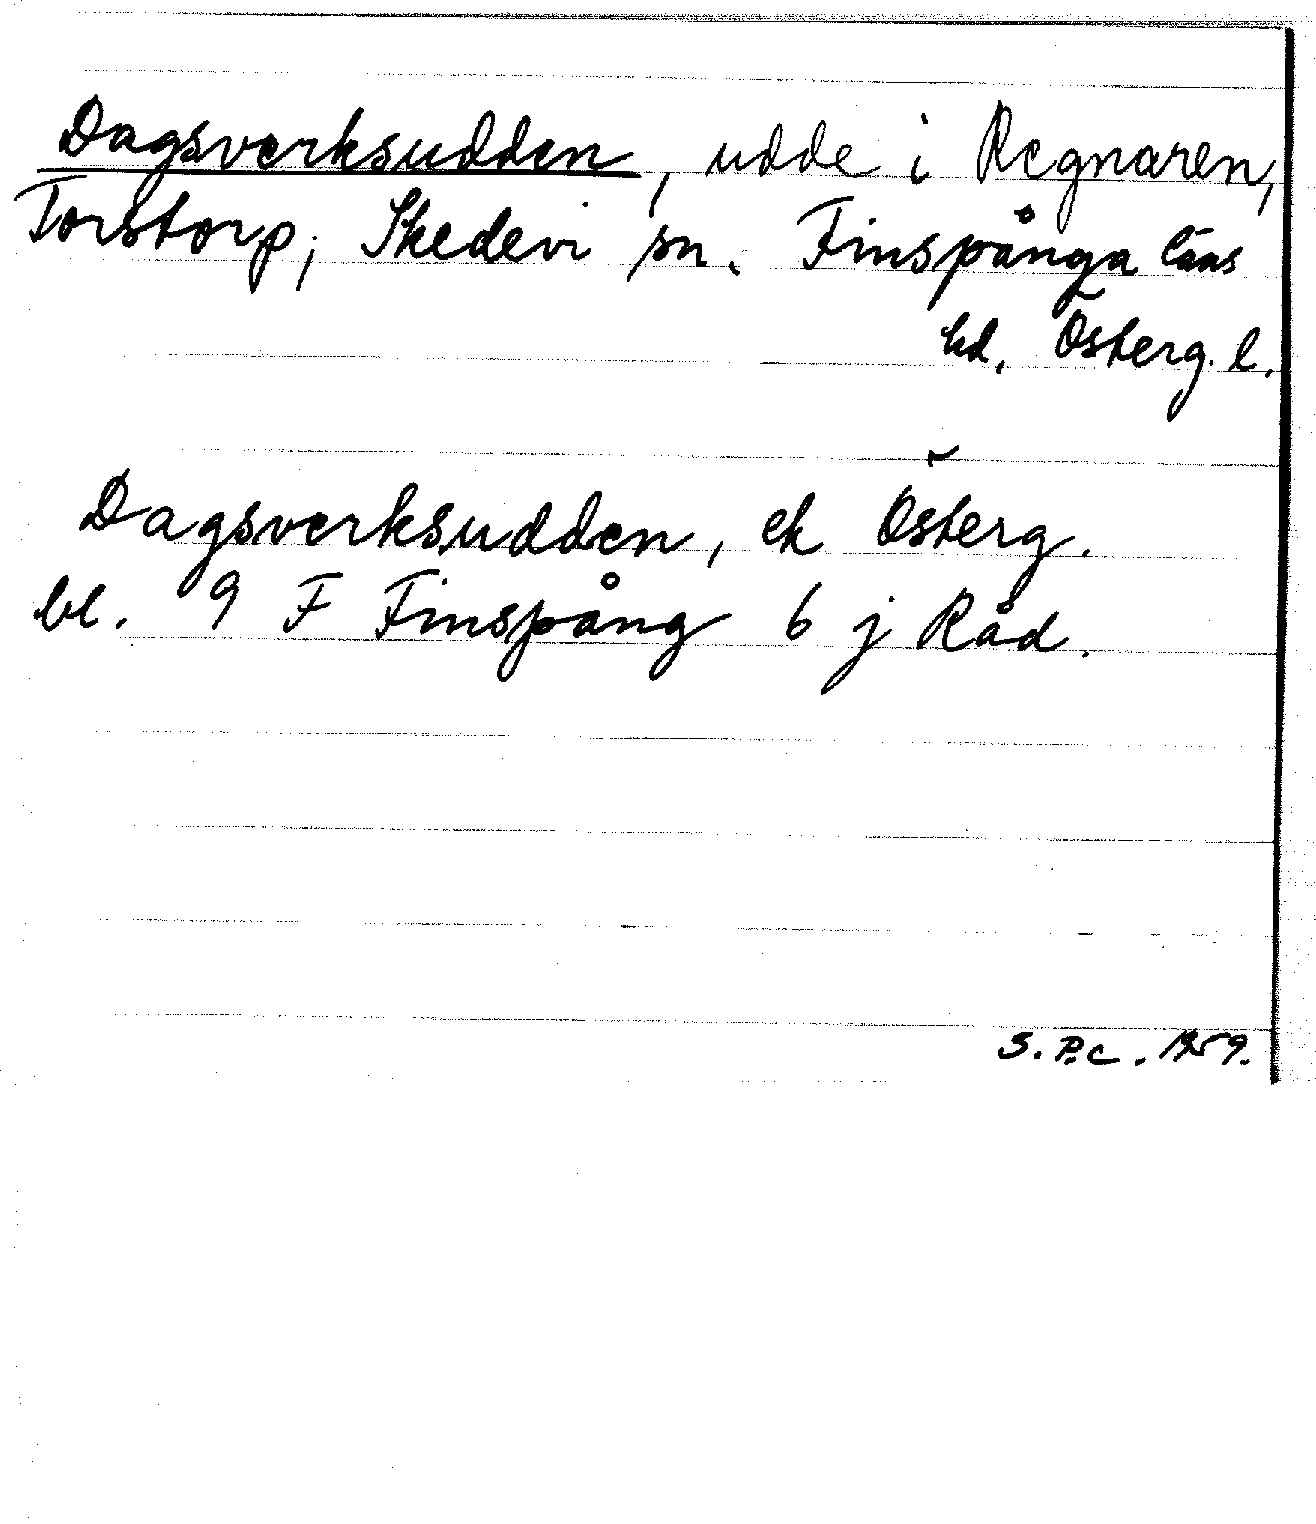 Dagsverksudden, udde i Regnaren,
Torstorp, Skedevi sn. Finspånga läns
hd. Österg. l.
Dagsverksudden, ek Österg.
bl. 9 F Finspång 6 j Råd.
S.P.C. 1959.